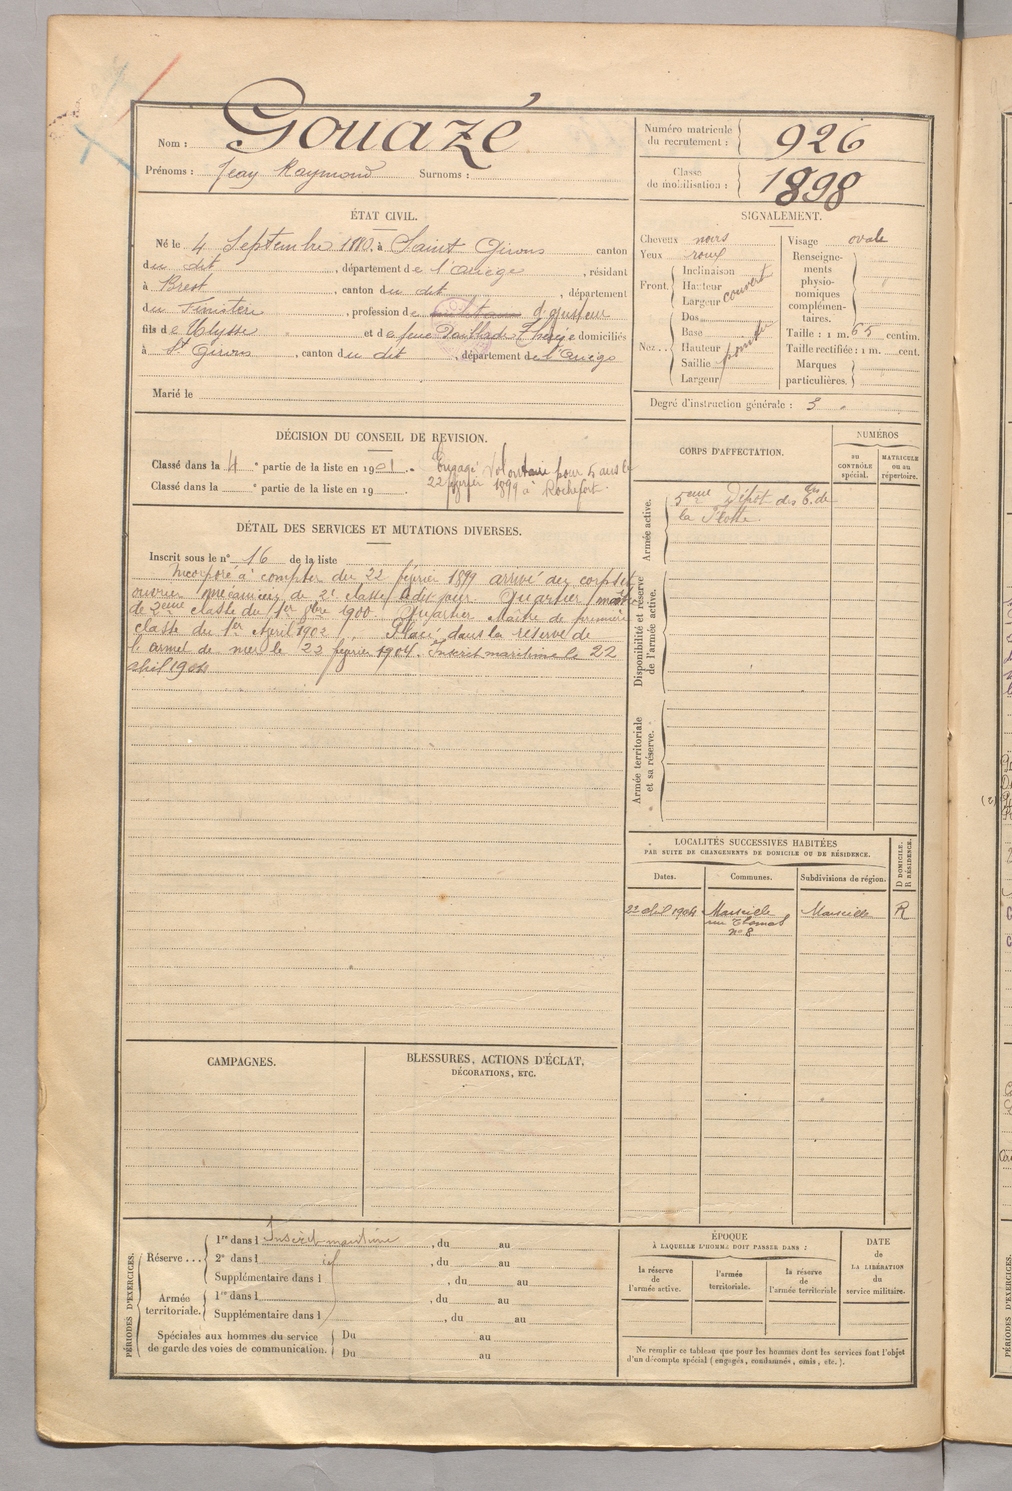 Nom : Gouazé
Prénoms : Jean Raymond Surnoms :
Numéro matricule du recrutement : 926
Classe de mobilisation : 1898
ÉTAT CIVIL.
Né le 4 Septembre 1880, à Saint Girons canton
du dit, département de l'Ariège, résidant
à Brest, canton du dit, département
du Finistère, profession de d'ajusteur
fils de Ulysse et de feue Thérèse domiciliés
à St Girons, canton du dit, département de l'Ariège
Marié le
SIGNALEMENT.
Cheveux noirs
Yeux roux
Front. Inclinaison
Hauteur
Largeur couvert
Nez... Dos
Base
Hauteur
Saillie pointu
Largeur
Visage ovale
Renseignements physionomiques complémentaires.
Taille : 1 m. 65 centim.
Taille rectifiée : 1 m. cent.
Marques particulières.
Degré d'instruction générale : 3
DÉCISION DU CONSEIL DE REVISION.
Classé dans la 4e partie de la liste en 1901.
Classé dans la e partie de la liste en 19
Engagé Volontaire pour 5 ans le
22 février 1899 à Rochefort
DÉTAIL DES SERVICES ET MUTATIONS DIVERSES.
Inscrit sous le n° 16 de la liste
Incorporé à compter du 22 février 1899 arrivé au corps et
ouvrier mécanicien de 2e classe le dit jour. Quartier maître
de 2eme classe du 1er 1900. Quartier Maître de première
classe du 1er Avril 1902. Placé dans la réserve de
l'armée de mer le 22 février 1904. Inscrit maritime le 22
avril 1904
CORPS D'AFFECTATION.
NUMÉROS
AU CONTRÔLE spécial.
MATRICULE OU AU répertoire.
Armée active.
5eme Dépôt des Eges de
la Flotte.
Disponibilité et réserve de l'armée active.
Armée territoriale et sa réserve.
LOCALITÉS SUCCESSIVES HABITÉES
PAR SUITE DE CHANGEMENTS DE DOMICILE OU DE RÉSIDENCE.
Dates.
Communes.
Subdivisions de région.
D DOMICILE.
R RÉSIDENCE.
22 avril 1904 Marseille Marseille R
rue Thomas
n° 8
CAMPAGNES.
BLESSURES, ACTIONS D'ÉCLAT,
DÉCORATIONS, ETC.
PÉRIODES D'EXERCICES.
Réserve... 1re dans l Inscrit maritime, du au
2e dans l, du au
Supplémentaire dans l, du au
Armée territoriale. 1re dans l, du au
Supplémentaire dans l, du au
Spéciales aux hommes du service
de garde des voies de communication.
Du au
Du au
ÉPOQUE
À LAQUELLE L'HOMME DOIT PASSER DANS :
la réserve de l'armée active.
l'armée territoriale.
la réserve de l'armée territoriale
DATE
de
LA LIBÉRATION
du
service militaire.
Ne remplir ce tableau que pour les hommes dont les services font l'objet
d'un décompte spécial (engagés, condamnés, omis, etc.).